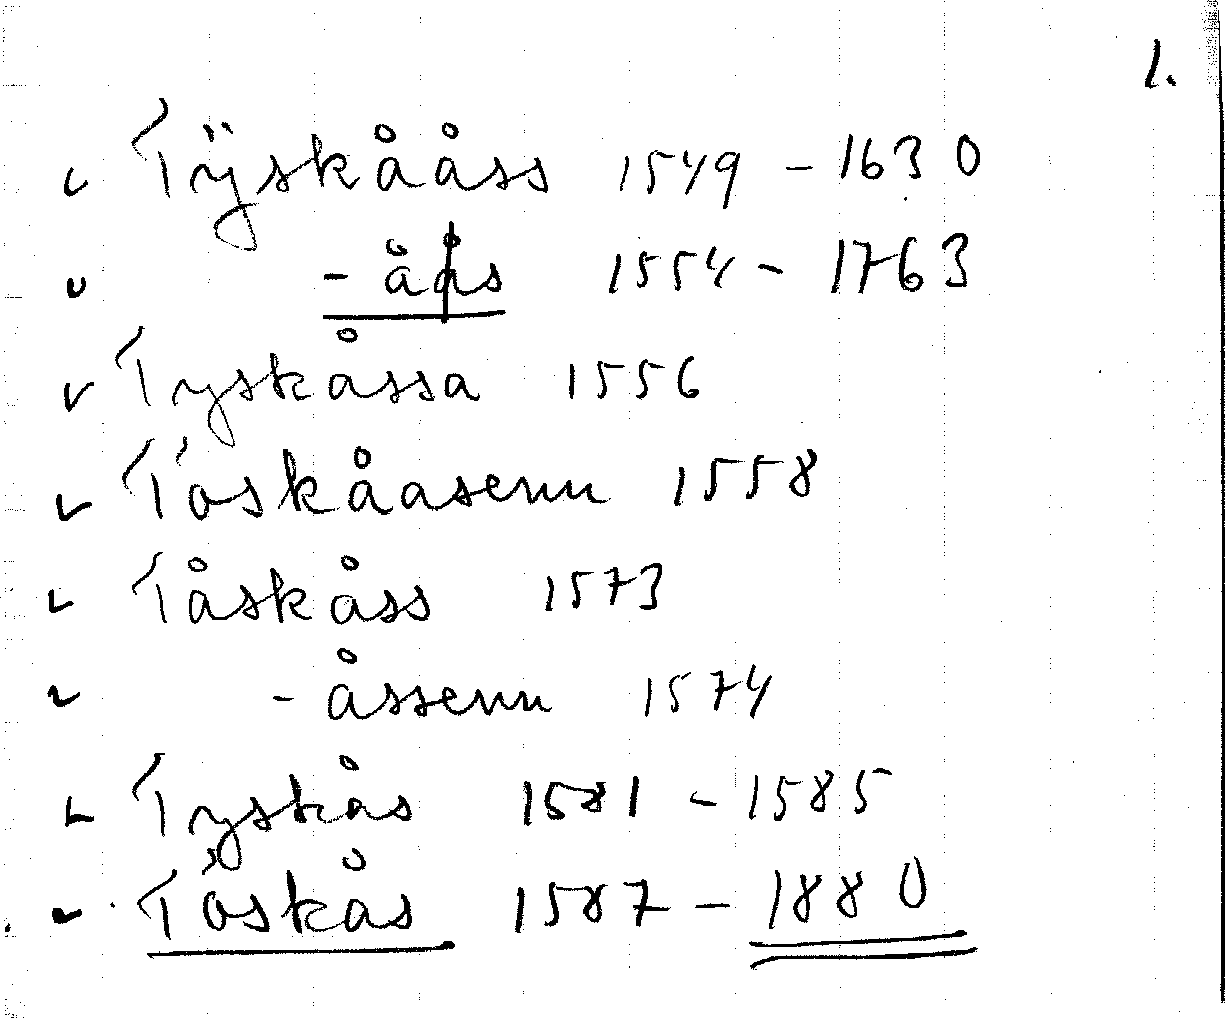 1.
Tÿskååss 1549 - 1630
- åås 1554 - 1763
Tyskåssa 1556
Tóskåasenn 1558
Tåskåss 1573
- åssenn 1574
Tyskås 1581 - 1585
Tóskås 1587 - 1880